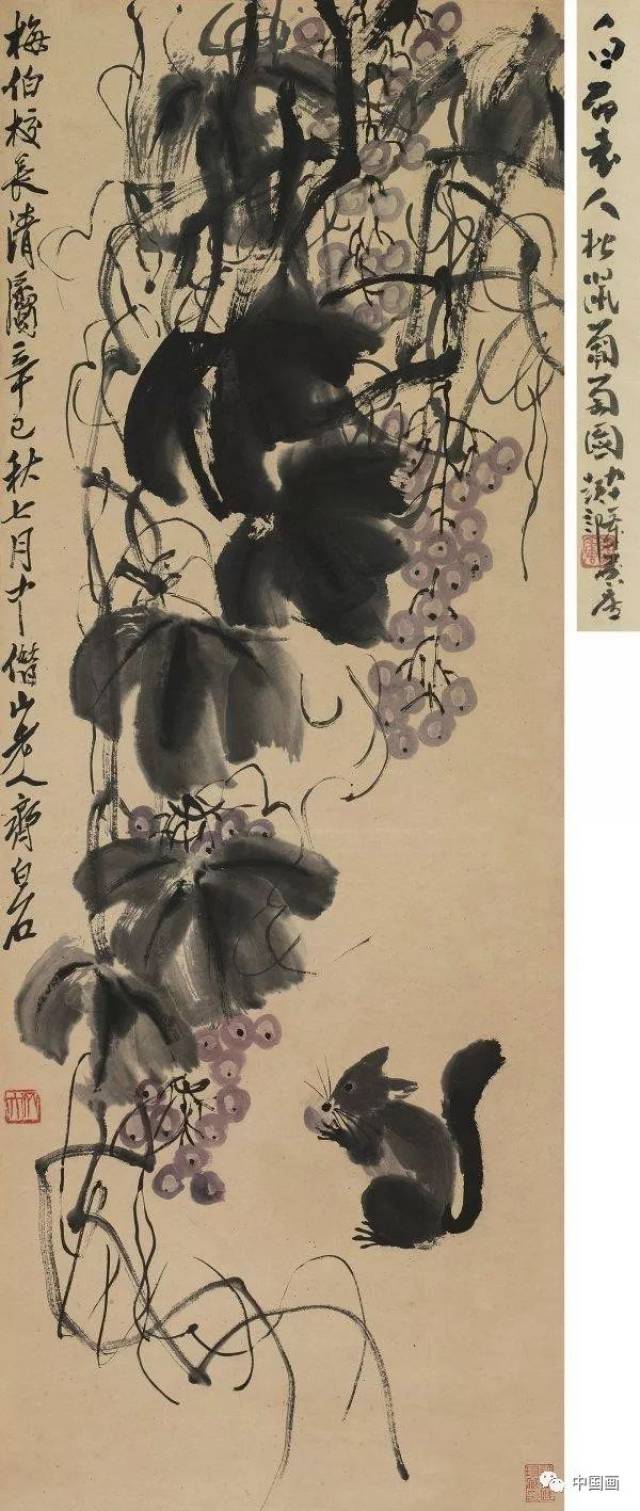 梅伯校長清屬辛巳秋七月中借山老人齊白石
白石老人松鼠葡萄圖
中国画